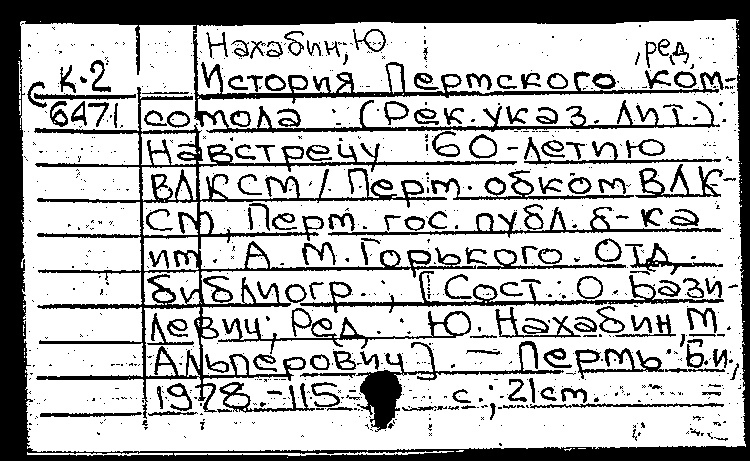 Нахабин, Ю
, ред
с К-2 История Пермского ком-
6471 сомола : (Рек. указ. лит.) :
Навстречу 60-летию
ВЛКСМ / Перм. обком ВЛК-
СМ, Перм. гос. публ. б-ка
им. А. М. Горького. Отд.
библиогр. ; [Сост.: О. Бази-
левич; Ред. : Ю. Нахабин, М.
Альперович]. — Пермь: Б.и.,
1978. - 115 с.; 21 см. =